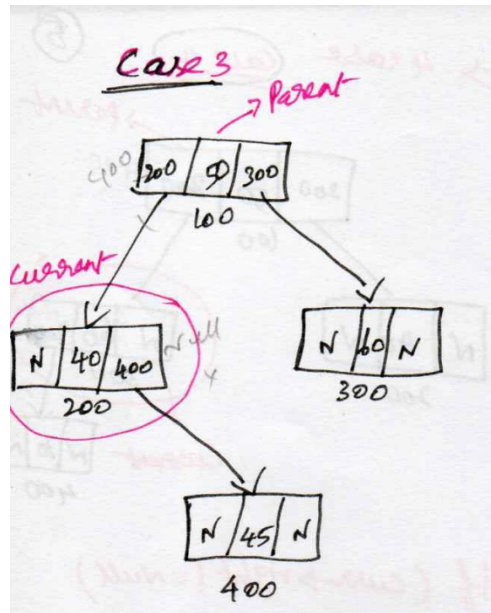 Case 3
Parent
400 200 50 300
100
Current
N 40 400 Null
200
N 60 N
300
N 45 N
400